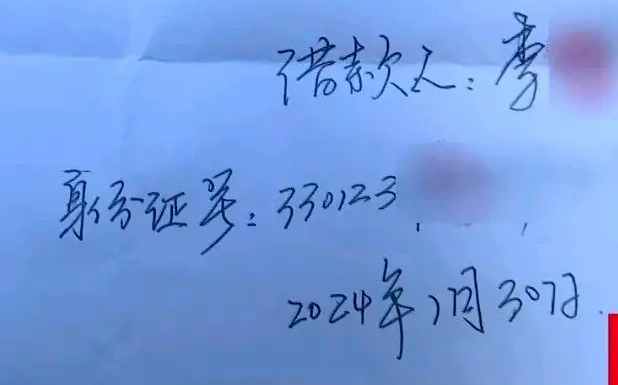 借款人：李
身份证号：330123
2024年1月30日